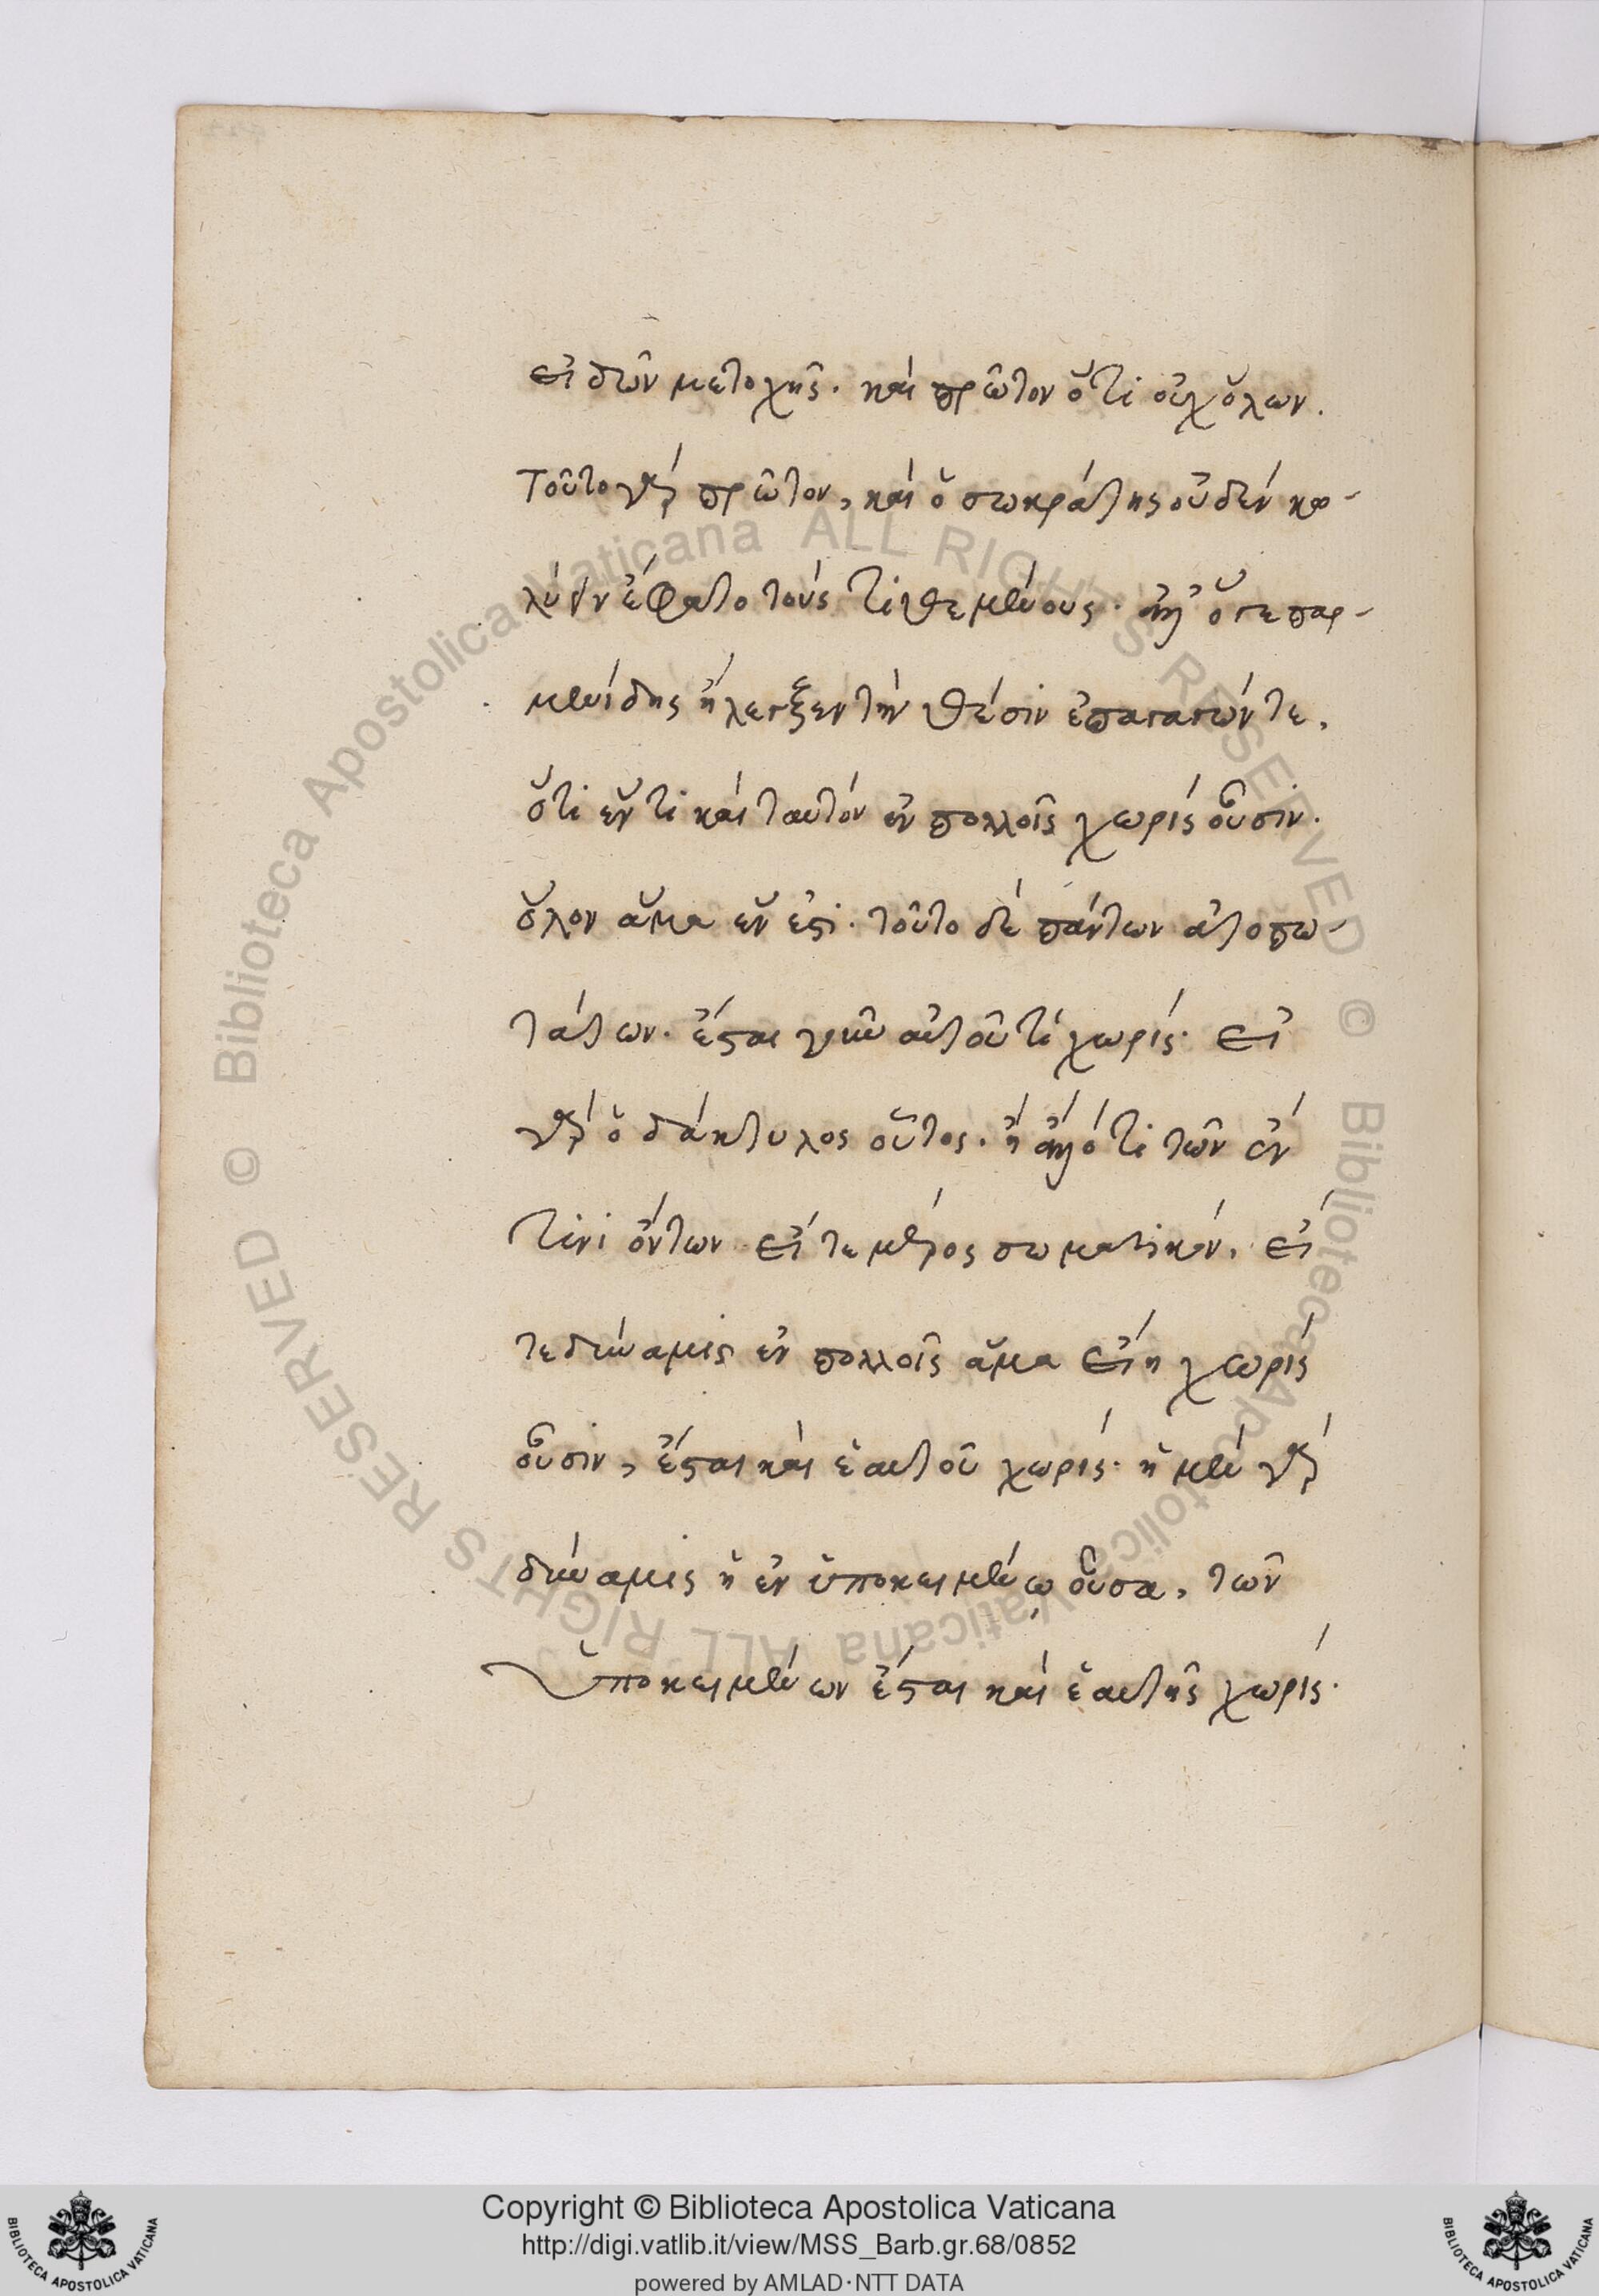 εἰδῶν μετοχῆς. καὶ πρῶτον ὅτι οὐχ ὅλων.
τοῦτο γὰρ πρῶτον, καὶ ὁ σωκράτης οὐδὲν κω-
λύειν ἔφατο τοὺς τιθεμένους. ἀλλ' ὅ γε παρ-
μενίδης ἤλεγξεν τὴν θέσιν ἐπαγαγών τε,
ὅτι ἕν τι καὶ ταυτὸν ἐν πολλοῖς χωρὶς οὖσιν.
ὅλον ἅμα ἓν ἐστί. τοῦτο δὲ πάντων ἀτοπω-
τάτων. ἔσται γοῦν αὐτοῦ τί χωρίς. εἰ
γὰρ ὁ δάκτυλος οὗτος. ἢ ἄλλό τι τῶν ἔν
τινι ὄντων εἴτε μέρος σωματικόν, εἴ
τε δύναμις ἐν πολλοῖς ἅμα εἴη χωρὶς
οὖσιν, ἔσται καὶ ἑαυτοῦ χωρίς. ἡ μὲν γὰρ
δύναμις ἡ ἐν ὑποκειμένῳ οὖσα, τῶν
ὑποκειμένων ἔσται καὶ ἑαυτῆς χωρίς.
© Biblioteca Apostolica Vaticana ALL RIGHTS RESERVED
© Biblioteca Apostolica Vaticana ALL RIGHTS RESERVED
Copyright © Biblioteca Apostolica Vaticana
http://digi.vatlib.it/view/MSS_Barb.gr.68/0852
powered by AMLAD·NTT DATA
BIBLIOTECA APOSTOLICA VATICANA
BIBLIOTECA APOSTOLICA VATICANA